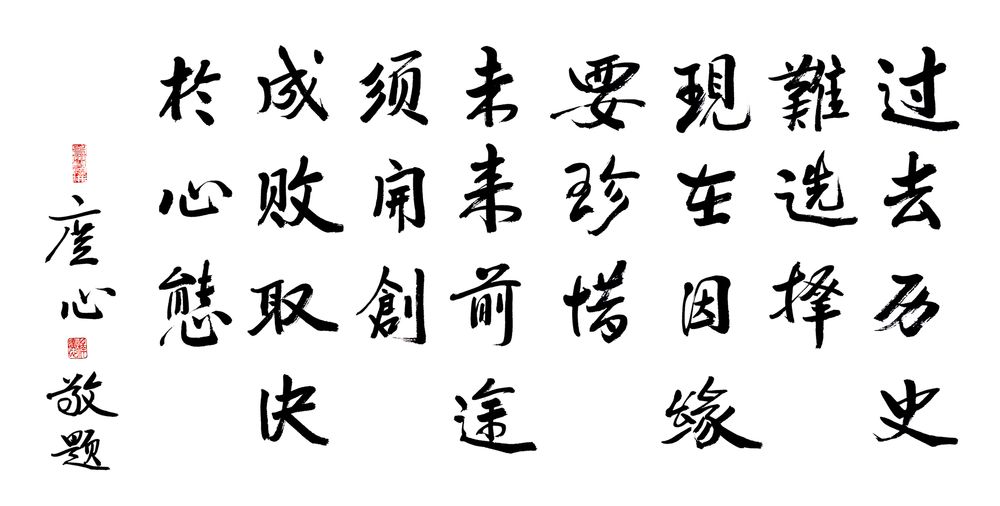 过去历史
難选择
現在因缘
要珍惜
未来前途
须开創
成败取决
於心態
心
敬题